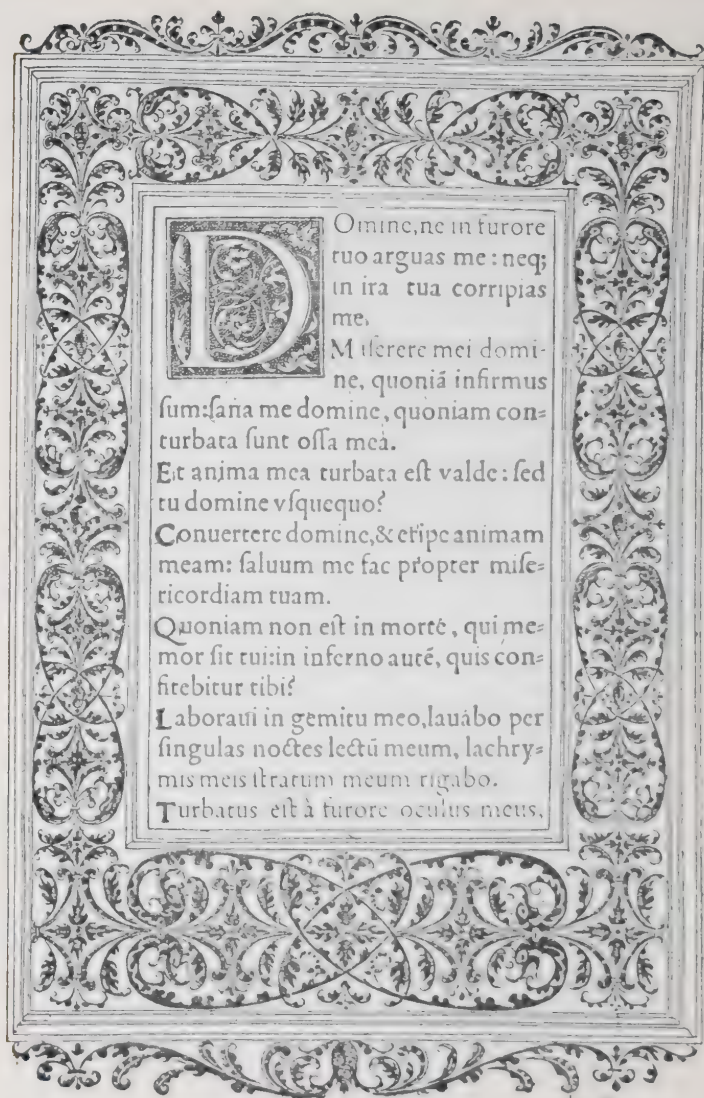 DOmine, ne in furore
tuo arguas me : neq;
in ira tua corripias
me.
Miserere mei domi-
ne, quoniã infirmus
ſum:ſana me domine, quoniam con=
turbata ſunt oſſa mea.
Et anima mea turbata eſt valde : ſed
tu domine vſquequo?
Conuertere domine,& eripe animam
meam: ſaluum me fac propter miſe=
ricordiam tuam.
Quoniam non eſt in morte, qui me=
mor ſit tui:in inferno autẽ, quis con=
fitebitur tibi?
Laboraui in gemitu meo,lauabo per
ſingulas noctes lectũ meum, lachry=
mis meis ſtratum meum rigabo.
Turbatus eſt à furore oculus meus,